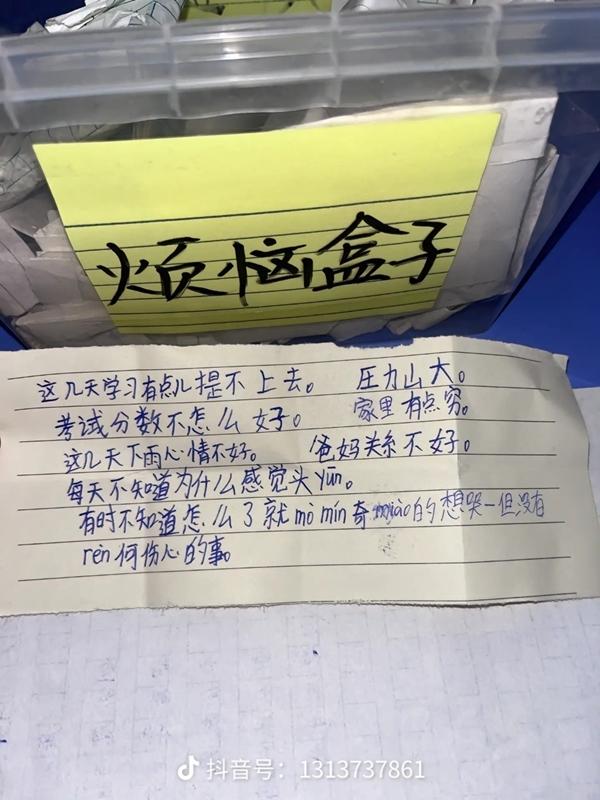 烦恼盒子
这几天学习有点儿提不上去。 压力山大。
考试分数不怎么好。 家里有点穷。
这几天下雨心情不好。 爸妈关系不好。
每天不知道为什么感觉头yūn。
有时不知道怎么了就mò mín奇miào的想哭-但没有
rèn何伤心的事。
抖音号：1313737861